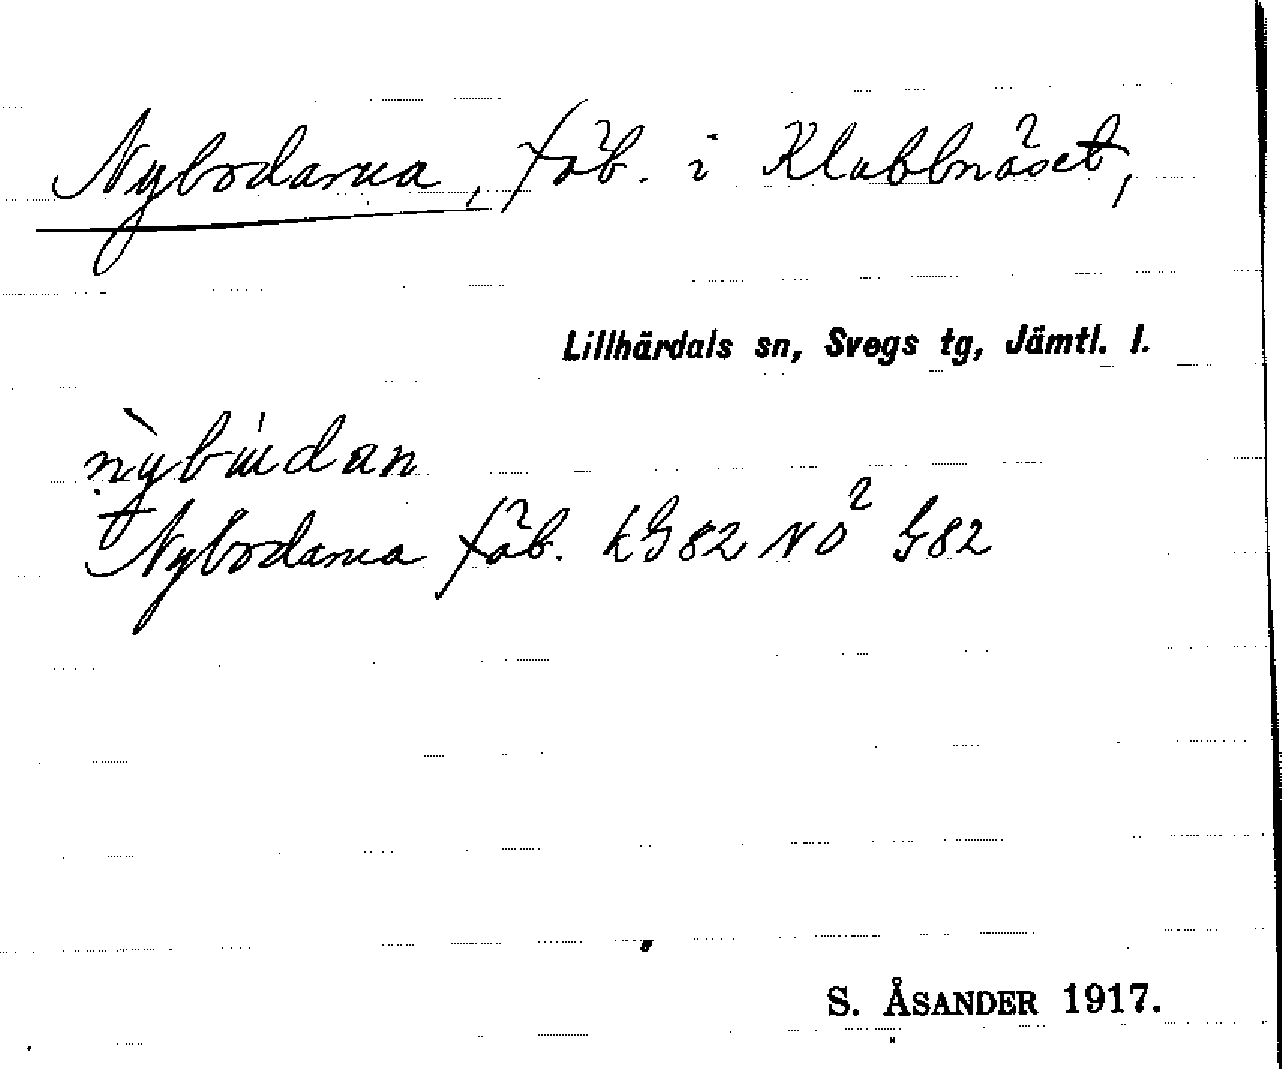 Nybodarna, fäb. i Klabbnäset,
Lillhärdals sn, Svegs tg, Jämtl. l.
Nybodarna fäb. LG82 NO² G82
S. ÅSANDER 1917.